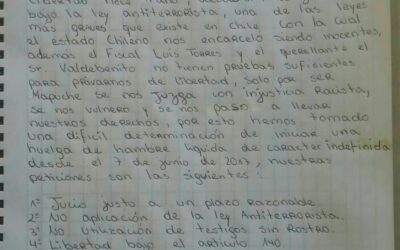 bajo la ley antiterrorista, una de las leyes
más graves que existe en Chile con la cual
el estado Chileno nos encarceló siendo inocentes,
además el Fiscal Luis Torres y el querellante el
sr. Valdebenito no tienen pruebas suficientes
para privarnos de libertad, solo por ser
Mapuche se nos Juzga con injusticia Racista,
se nos vulnero y se nos paso a llevar
nuestros derechos, por esto hemos tomado
una difícil determinación de iniciar una
huelga de hambre liquida de caracter indefinida
desde el 7 de junio de 2017, nuestras
peticiones son las siguientes:
1º Juicio justo a un plazo Razonable
2º NO aplicación de la ley Antiterrorista.
3º NO Utilización de testigos sin Rostro.
4º Libertad bajo el articulo 140.